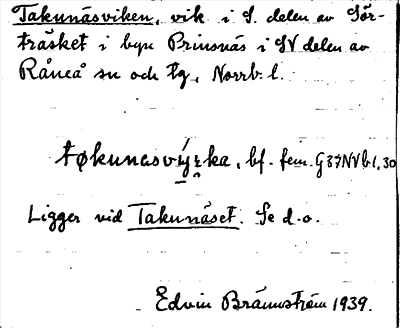 Takunäsviken, vik i S. delen av Sör-
träsket i byn Prinsnäs i SV delen av
Råneå sn och tg, Norrb. l.
tøkunæsvýʒka, bf. fem. G37NVb1,30
Ligger vid Takunäset. Se d.o.
Edvin Brännström 1939.